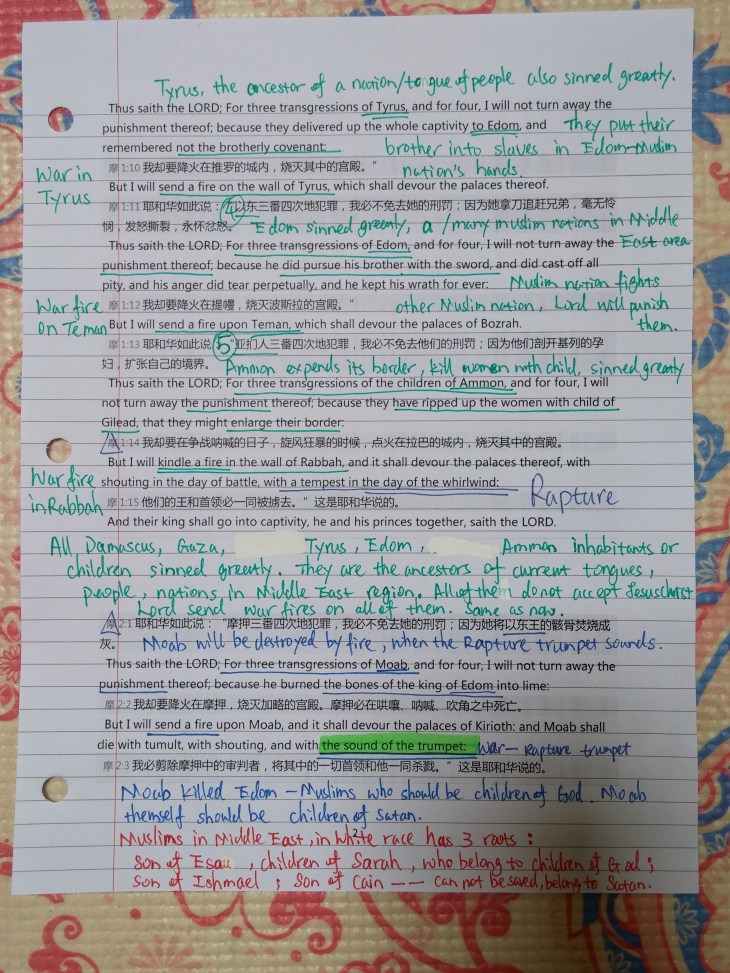 Tyrus, the ancestor of a nation/tongue of people also sinned greatly.
Thus saith the LORD; For three transgressions of Tyrus, and for four, I will not turn away the
punishment thereof; because they delivered up the whole captivity to Edom, and They put their
remembered not the brotherly covenant: brother into slaves in Edom-Muslim
nation's hands.
War in
Tyrus
摩 1:10 我却要降火在推罗的城内，烧灭其中的宫殿。”
But I will send a fire on the wall of Tyrus, which shall devour the palaces thereof.
摩 1:11 耶和华如此说：④以东三番四次地犯罪，我必不免去她的刑罚；因为她拿刀追赶兄弟，毫无怜
悯，发怒撕裂，永怀忿怒。 Edom sinned greatly, a / many muslim nations in Middle
Thus saith the LORD; For three transgressions of Edom, and for four, I will not turn away the East area
punishment thereof; because he did pursue his brother with the sword, and did cast off all
pity, and his anger did tear perpetually, and he kept his wrath for ever: Muslim nation fights
War fire
on Teman
摩 1:12 我却要降火在提幔，烧灭波斯拉的宫殿。” other Muslim nation, Lord will punish
them.
But I will send a fire upon Teman, which shall devour the palaces of Bozrah.
摩 1:13 耶和华如此说⑤“亚扪人三番四次地犯罪，我必不免去他们的刑罚；因为他们剖开基列的孕
妇，扩张自己的境界。 Ammon expends its border, kill women with child, sinned greatly
Thus saith the LORD; For three transgressions of the children of Ammon, and for four, I will
not turn away the punishment thereof; because they have ripped up the women with child of
Gilead, that they might enlarge their border:
摩 1:14 我却要在争战呐喊的日子，旋风狂暴的时候，点火在拉巴的城内，烧灭其中的宫殿。
But I will kindle a fire in the wall of Rabbah, and it shall devour the palaces thereof, with
War fire
in Rabbah
shouting in the day of battle, with a tempest in the day of the whirlwind: Rapture
摩 1:15 他们的王和首领必一同被掳去。”这是耶和华说的。
And their king shall go into captivity, he and his princes together, saith the LORD.
All Damascus, Gaza, Tyrus, Edom, Ammon inhabitants or
children sinned greatly. They are the ancestors of current tongues,
people, nations, in Middle East region. All of them do not accept Jesus christ
Lord send war fires on all of them. Same as now.
摩 2:1 耶和华如此说：“摩押三番四次地犯罪，我必不免去她的刑罚；因为她将以东王的骸骨焚烧成
灰。 Moab will be destroyed by fire, when the Rapture trumpet sounds.
Thus saith the LORD; For three transgressions of Moab, and for four, I will not turn away the
punishment thereof; because he burned the bones of the king of Edom into lime:
摩 2:2 我却要降火在摩押，烧灭加略的宫殿。摩押必在哄嚷、呐喊、吹角之中死亡。
But I will send a fire upon Moab, and it shall devour the palaces of Kirioth: and Moab shall
die with tumult, with shouting, and with the sound of the trumpet: War — Rapture trumpet
摩 2:3 我必剪除摩押中的审判者，将其中的一切首领和他一同杀戮。”这是耶和华说的。
Moab killed Edom – Muslims who should be children of God. Moab
themself should be children of Satan.
Muslims in Middle East, in white race has 3 roots:
2
Son of Esau, children of Sarah, who belong to children of God;
Son of Ishmael; Son of Cain —— can not be saved, belong to Satan.